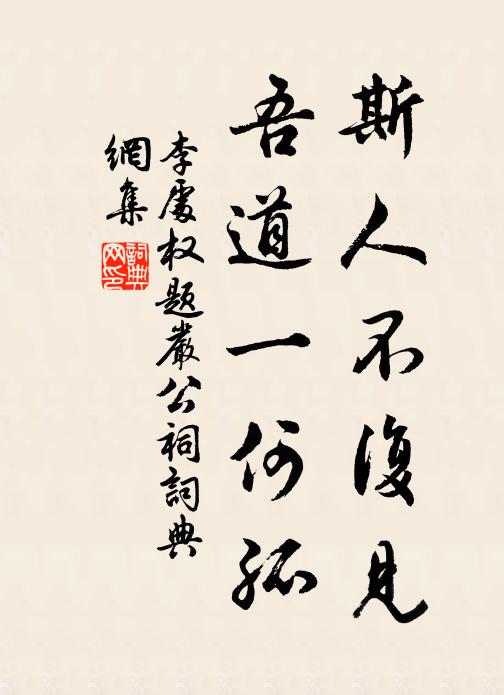 斯人不復見
吾道一何孤
李處权题嚴公祠詞典
網集
詞典
网印